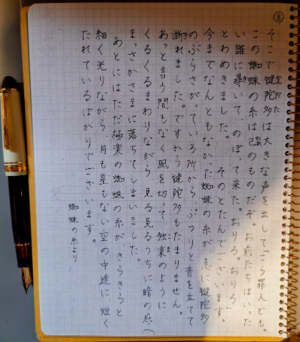 そこで犍陀多は大きな声を出して「こら罪人ども。
この蜘蛛の糸は己のものだぞ。お前たちはいった
い誰に尋いて、のぼって来た。おりろ。おりろ」
とわめきました。そのとたんでございます。
今までなんともなかった蜘蛛の糸が、急に犍陀多
のぶらさがっている所から、ぷつりと音を立てて
断れました。ですから犍陀多もたまりません。
あっと言う間もなく風を切って、独楽のように
くるくるまわりながら見る見るうちに暗の底へ
まっさかさまに落ちてしまいました。
あとにはただ極楽の蜘蛛の糸がきらきらと
細く光りながら月も星もない空の中途に短く
たれているばかりでございます。
蜘蛛の糸より